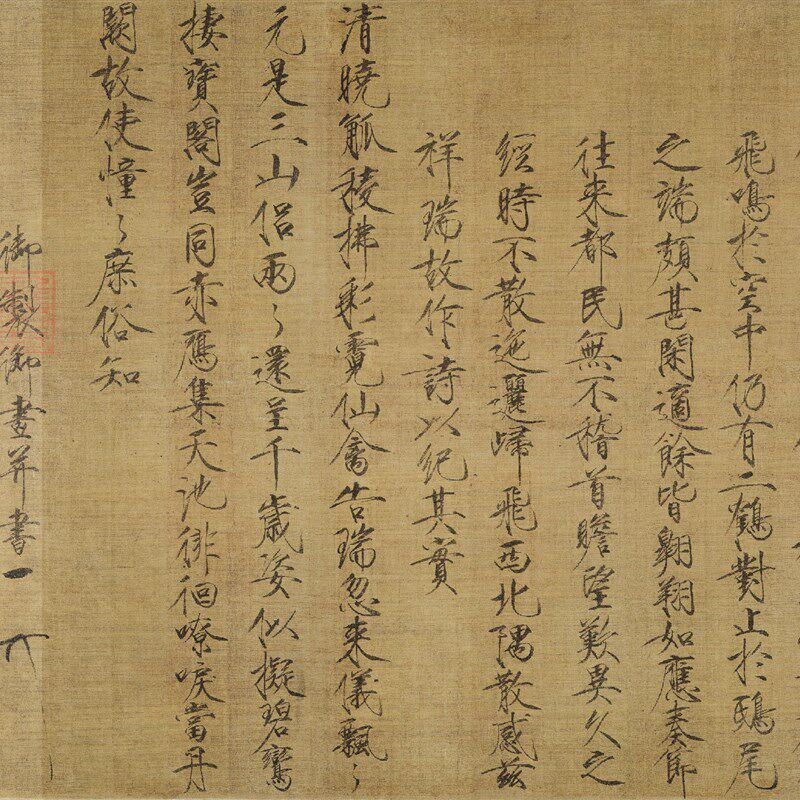 飛鳴於空中仍有二鶴對止於鴟尾
之端頗甚閑適餘皆翱翔如應奏節
往来都民無不稽首瞻望歎異久之
經時不散迤邐歸飛西北隅散感茲
祥瑞故作詩以紀其實
清曉觚稜拂彩霓仙禽告瑞忽来儀飄〻
元是三山侶兩〻還呈千歲姿似擬碧鸞
棲寶閣豈同赤鴈集天池徘徊嘹唳當丹
闕故使憧〻庶俗知
御製御畫并書